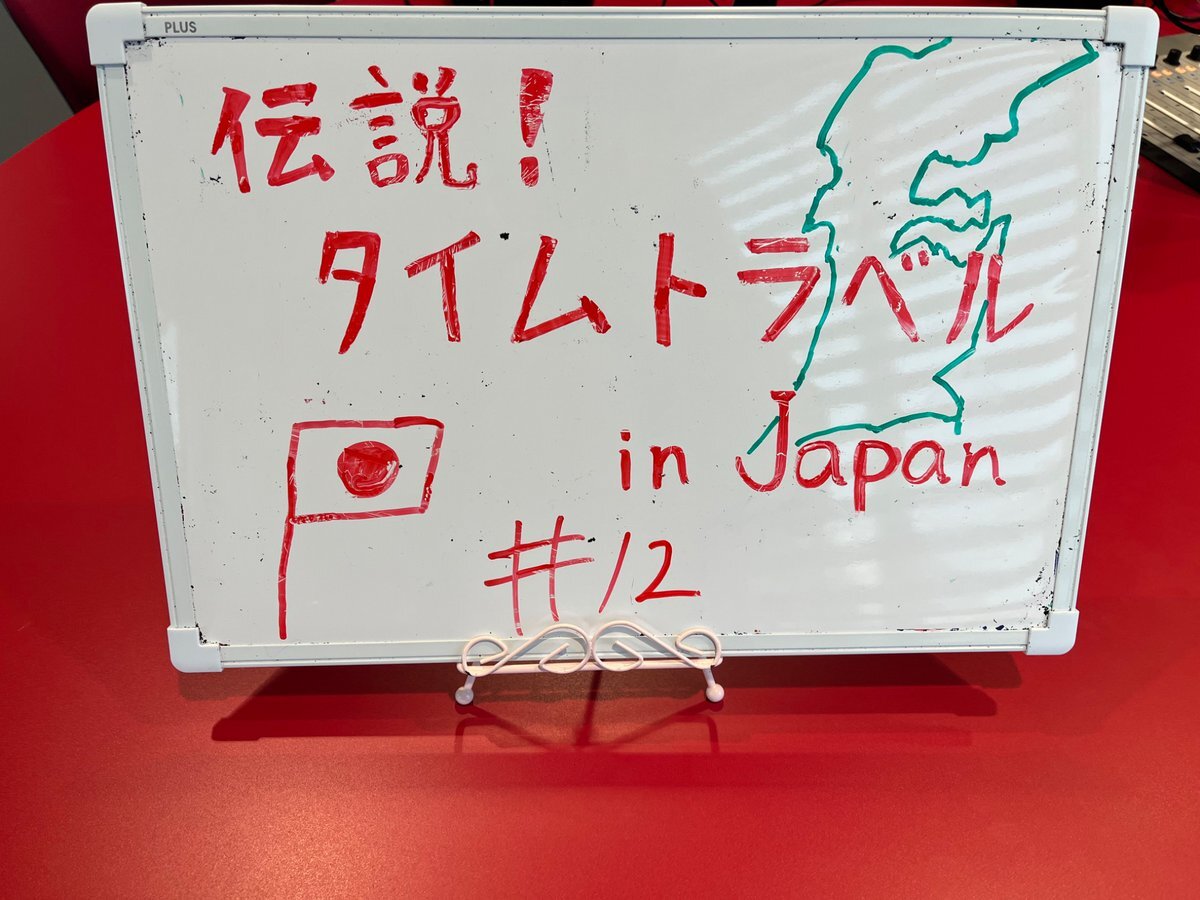 PLUS
伝説!
タイムトラベル
in Japan
#12